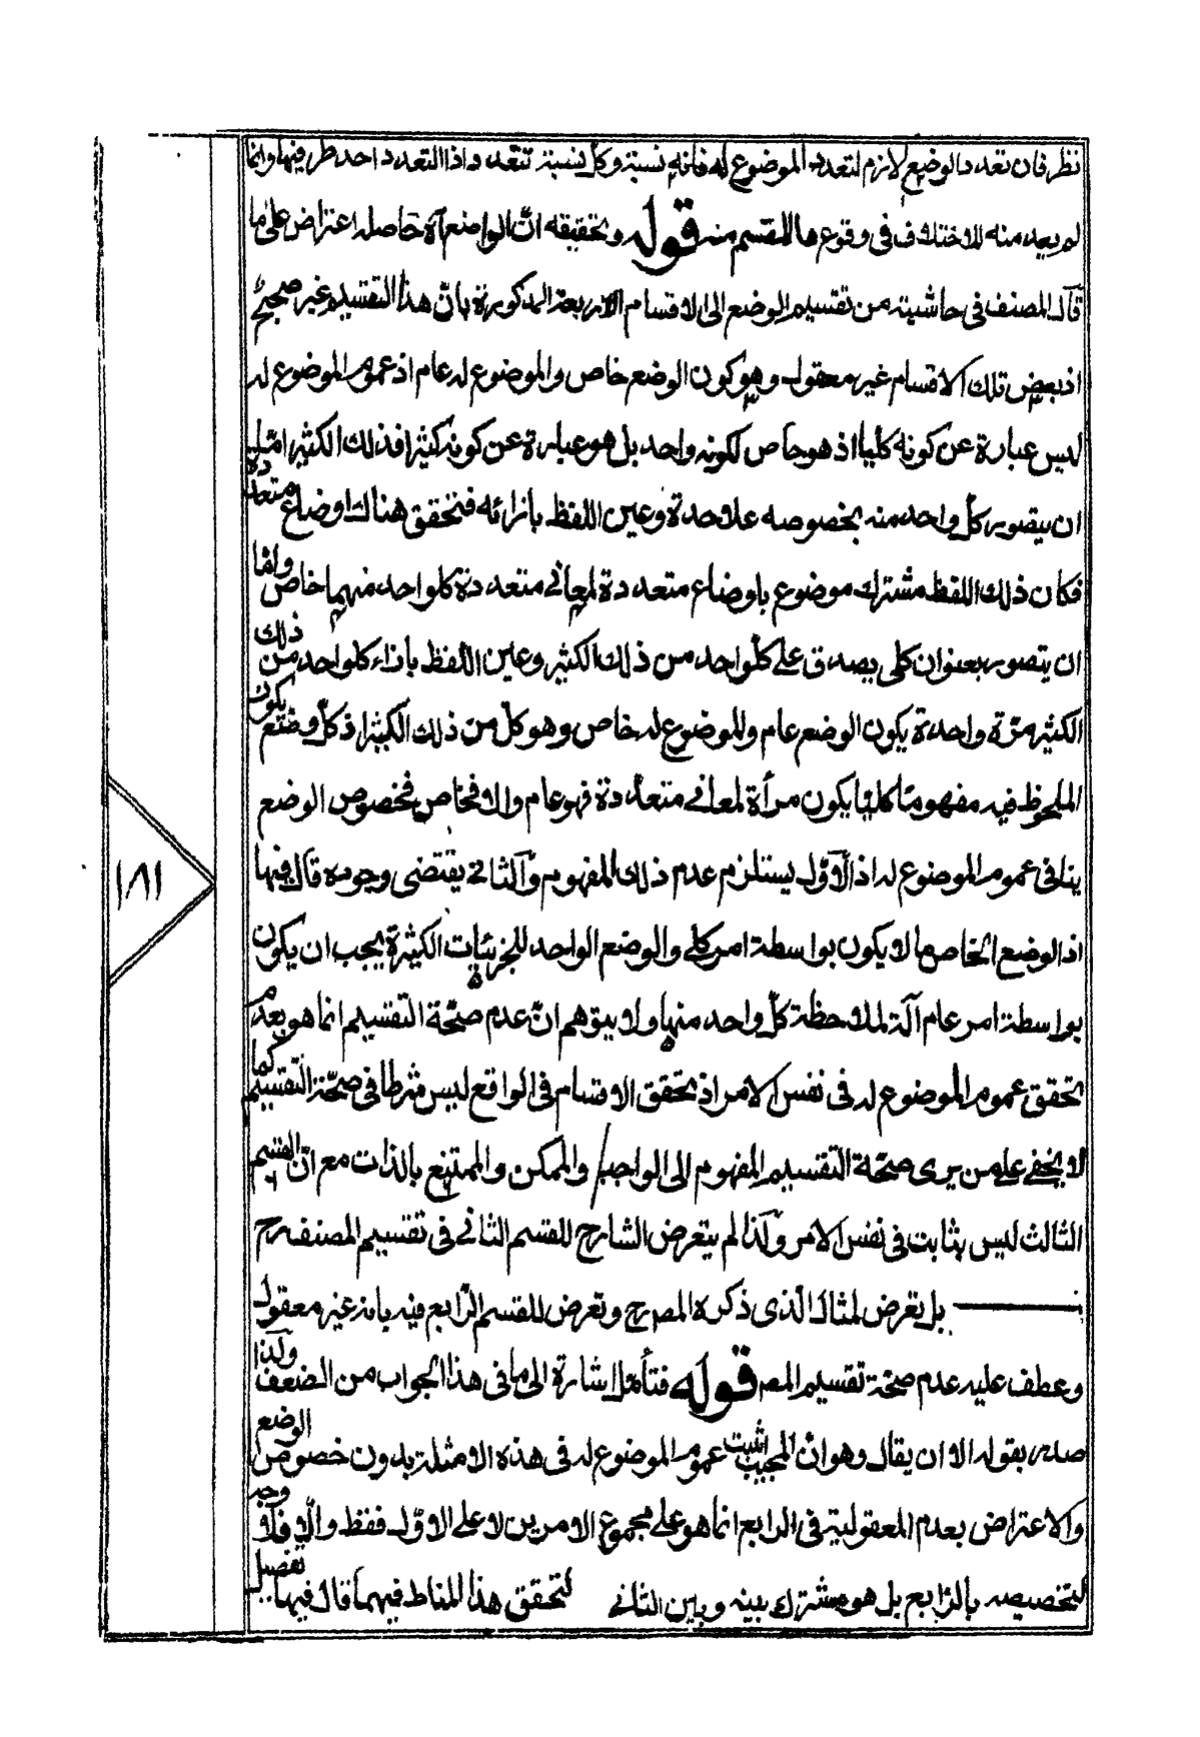 نظر فان تعدد الوضع لازم لتعدد الموضوع له فانه نسبة وكل نسبة تتعدد اذا التعدد احد طرفيها وانما
لم يعد منه للاختلاف فى وقوع ما المقسم منه قوله وتحقيقه انّ الواضع آه حاصله اعتراض على ما
قال المصنف فى حاشيته من تقسيم الوضع الى الاقسام الاربعة المذكورة بانّ هذا التقسيم غير صحيح
اذ بعض تلك الاقسام غير معقول وهو كون الوضع خاص والموضوع له عام اذ عموم الموضوع له
ليس عبارة عن كونه كليا اذ هو خاص لكونه واحد بل هو عبارة عن كونه كثيرا فذلك الكثير امّا
ان يتصور كل واحد منه بخصوصه علاحدة وعين اللفظ بازائه فتحقق هناك اوضاع متعددة
فكان ذلك اللفظ مشترك موضوع باوضاع متعددة لمعانى متعددة كلواحد منهما خاص وامّا
ان يتصور بعنوان كلى يصدق على كلواحد من ذلك الكثير وعين اللفظ باذاء كلواحد من ذلك
الكثير مرّة واحدة يكون الوضع عام والموضوع له خاص وهو كل من ذلك الكثير اذ كلّ وضع يكون
الملحوظ فيه مفهومًا كليًا يكون مرأة لمعانى متعددة فهو عام والا فخاص فخصوص الوضع
ينافى عموم الموضوع له اذ الاوّل يستلزم عدم ذلك المفهوم والثانى يقتضى وجوده قال فيها
اذ الوضع الخاص ما لا يكون بواسطة امر كلى والوضع الواحد للجزئيات الكثيرة يجب ان يكون
بواسطة امر عام آلة لملاحظة كلّ واحد منها ولا يتوهم انّ عدم صحّة التقسيم انما هو بعدم
تحقق عموم الموضوع له فى نفس الامر اذ تحقق الاقسام فى الواقع ليس شرطا فى صحّة التقسيم كما
لا يخفى على من يرى صحّة التقسيم المفهوم الى الواجب والممكن والممتنع بالذات مع انّ القسم
الثالث ليس بثابت فى نفس الامر ولذا لم يتعرض الشارح للقسم الثانى فى تقسيم المصنف رح
بل تعرض لمثال الّذى ذكره المص رح وتعرض للقسم الرّابع فيه بانه غير معقول
وعطف عليه عدم صحة تقسيم المص قوله فتأمل اشارة الى ما فى هذا الجواب من الضعف ولذا
صدر بقوله الا ان يقال وهو انّ المجيب اثبت عموم الموضوع له فى هذه الامثلة بدون خصوص الوضع
والاعتراض بعدم المعقولية فى الرابع انما هو على مجموع الامرين لا على الاوّل فقط والّا فلا وجه
لتخصيصه بالرّابع بل هو مشترك بينه وبين الثانى لتحقق هذا المناط فيهما قال فيها تفصيل
١٨١